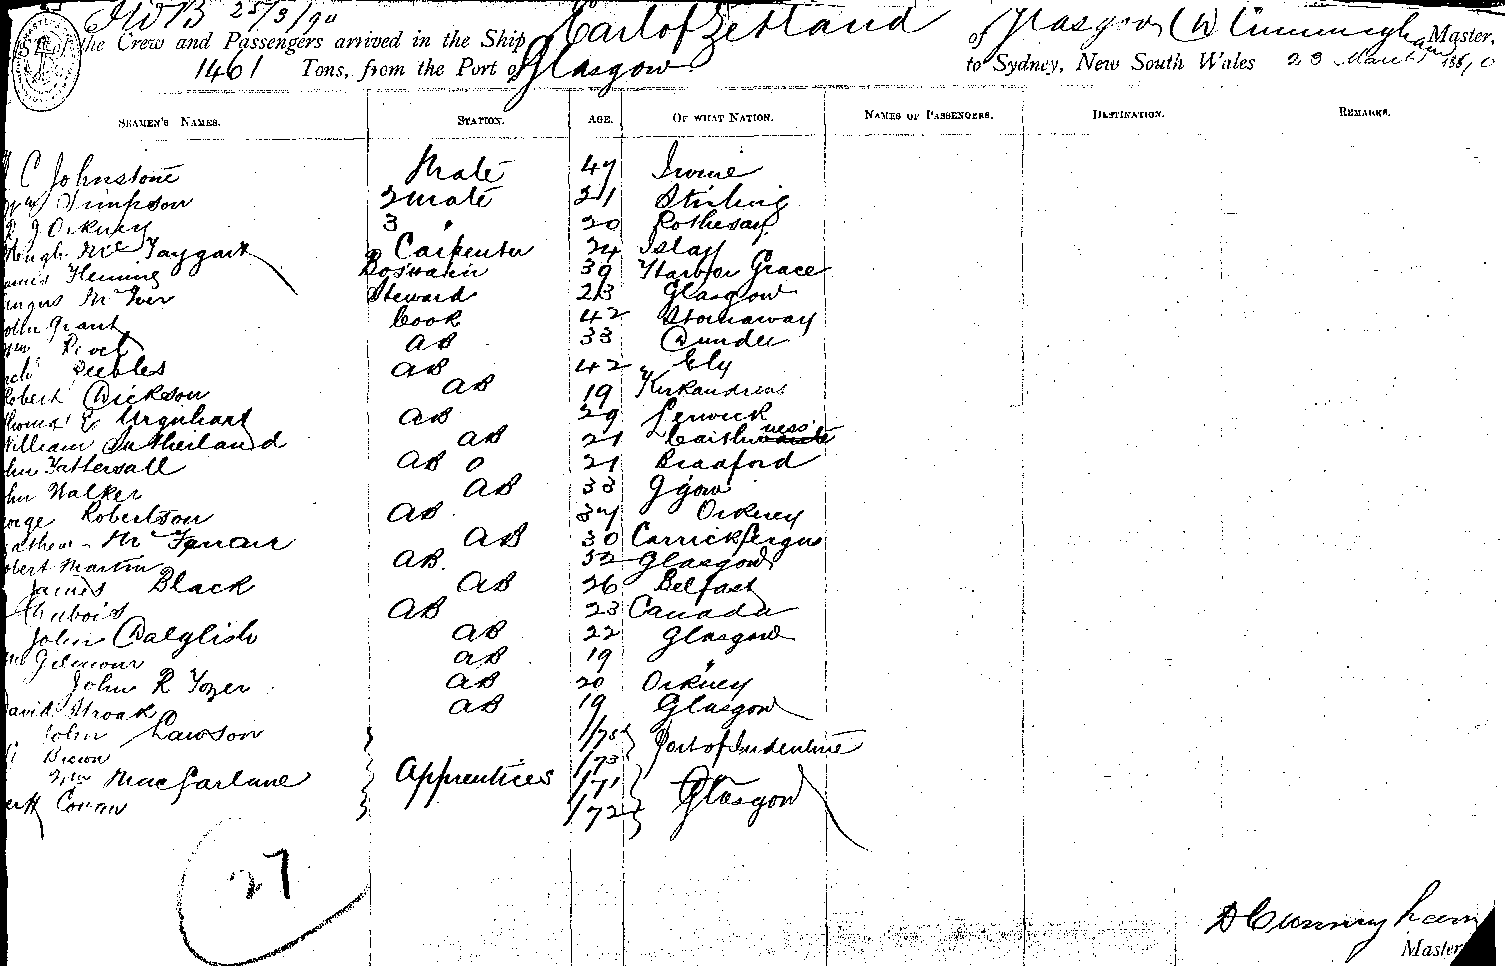 JWB 25/3/90
of the Crew and Passengers arrived in the Ship Earl of Zetland of Glasgow D Cunningham Master,
1461 Tons, from the Port of Glasgow to Sydney, New South Wales 23 March 1890
SEAMEN'S NAMES. STATION. AGE. OF WHAT NATION. NAMES OF PASSENGERS. DESTINATION. REMARKS.
C Johnstone Mate 47 Irvine
Wm Simpson 2 mate 21 Stirling
J Orkney 3 " 20 Rothesay
Hugh McTaggart Carpenter 24 Islay
Fleming Boswain 39 Harbor Grace
Angus McIver Steward 23 Glasgow
John Grant Cook 42 Stornaway
Wm AB 33 Dundee
Peebles AB 42 Ely
Robert Dickson AB 19 Kirkandrews
Thomas E Urquhart AB 29 Fenwick
William Sutherland AB 21 Caithness
John Tattersall AB 21 Bradford
John Walker AB 33 Ggow
George Robertson AB 37 Orkney
Mathew Mc AB 30 Carrickfergus
Robert Martin AB. 32 Glasgow
James Black AB 26 Belfast
Dubois AB 23 Canada
John Dalglish AB 22 Glasgow
Gilmour AB 19 "
John R Tozer AB 20 Orkney
David Stroak AB 19 Glasgow
John Lawson 1/75 Port of Indenture
Brown 1/73
Wm MacFarlane Apprentices 1/71 Glasgow
Cowan 1/72
27
D Cunningham
Master